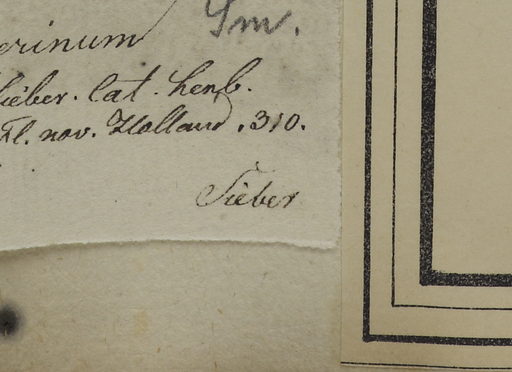 erinum Sm.
Sieber. Cat. herb.
Fl. nov. Holland. 310.
Sieber